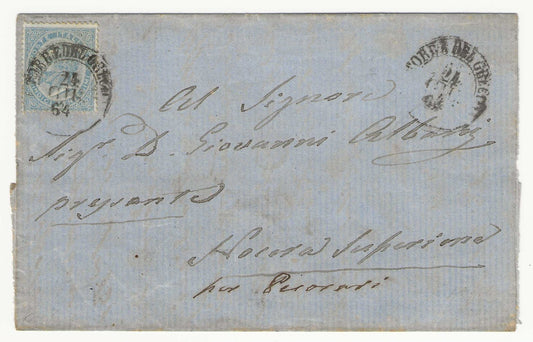 TORRE DEL GRECO
24
LUG
64
TORRE DEL GRECO
24
LUG
64
Al Signore
Sigr. D. Giovanni Albarj
presente
Nocera Superiore
per